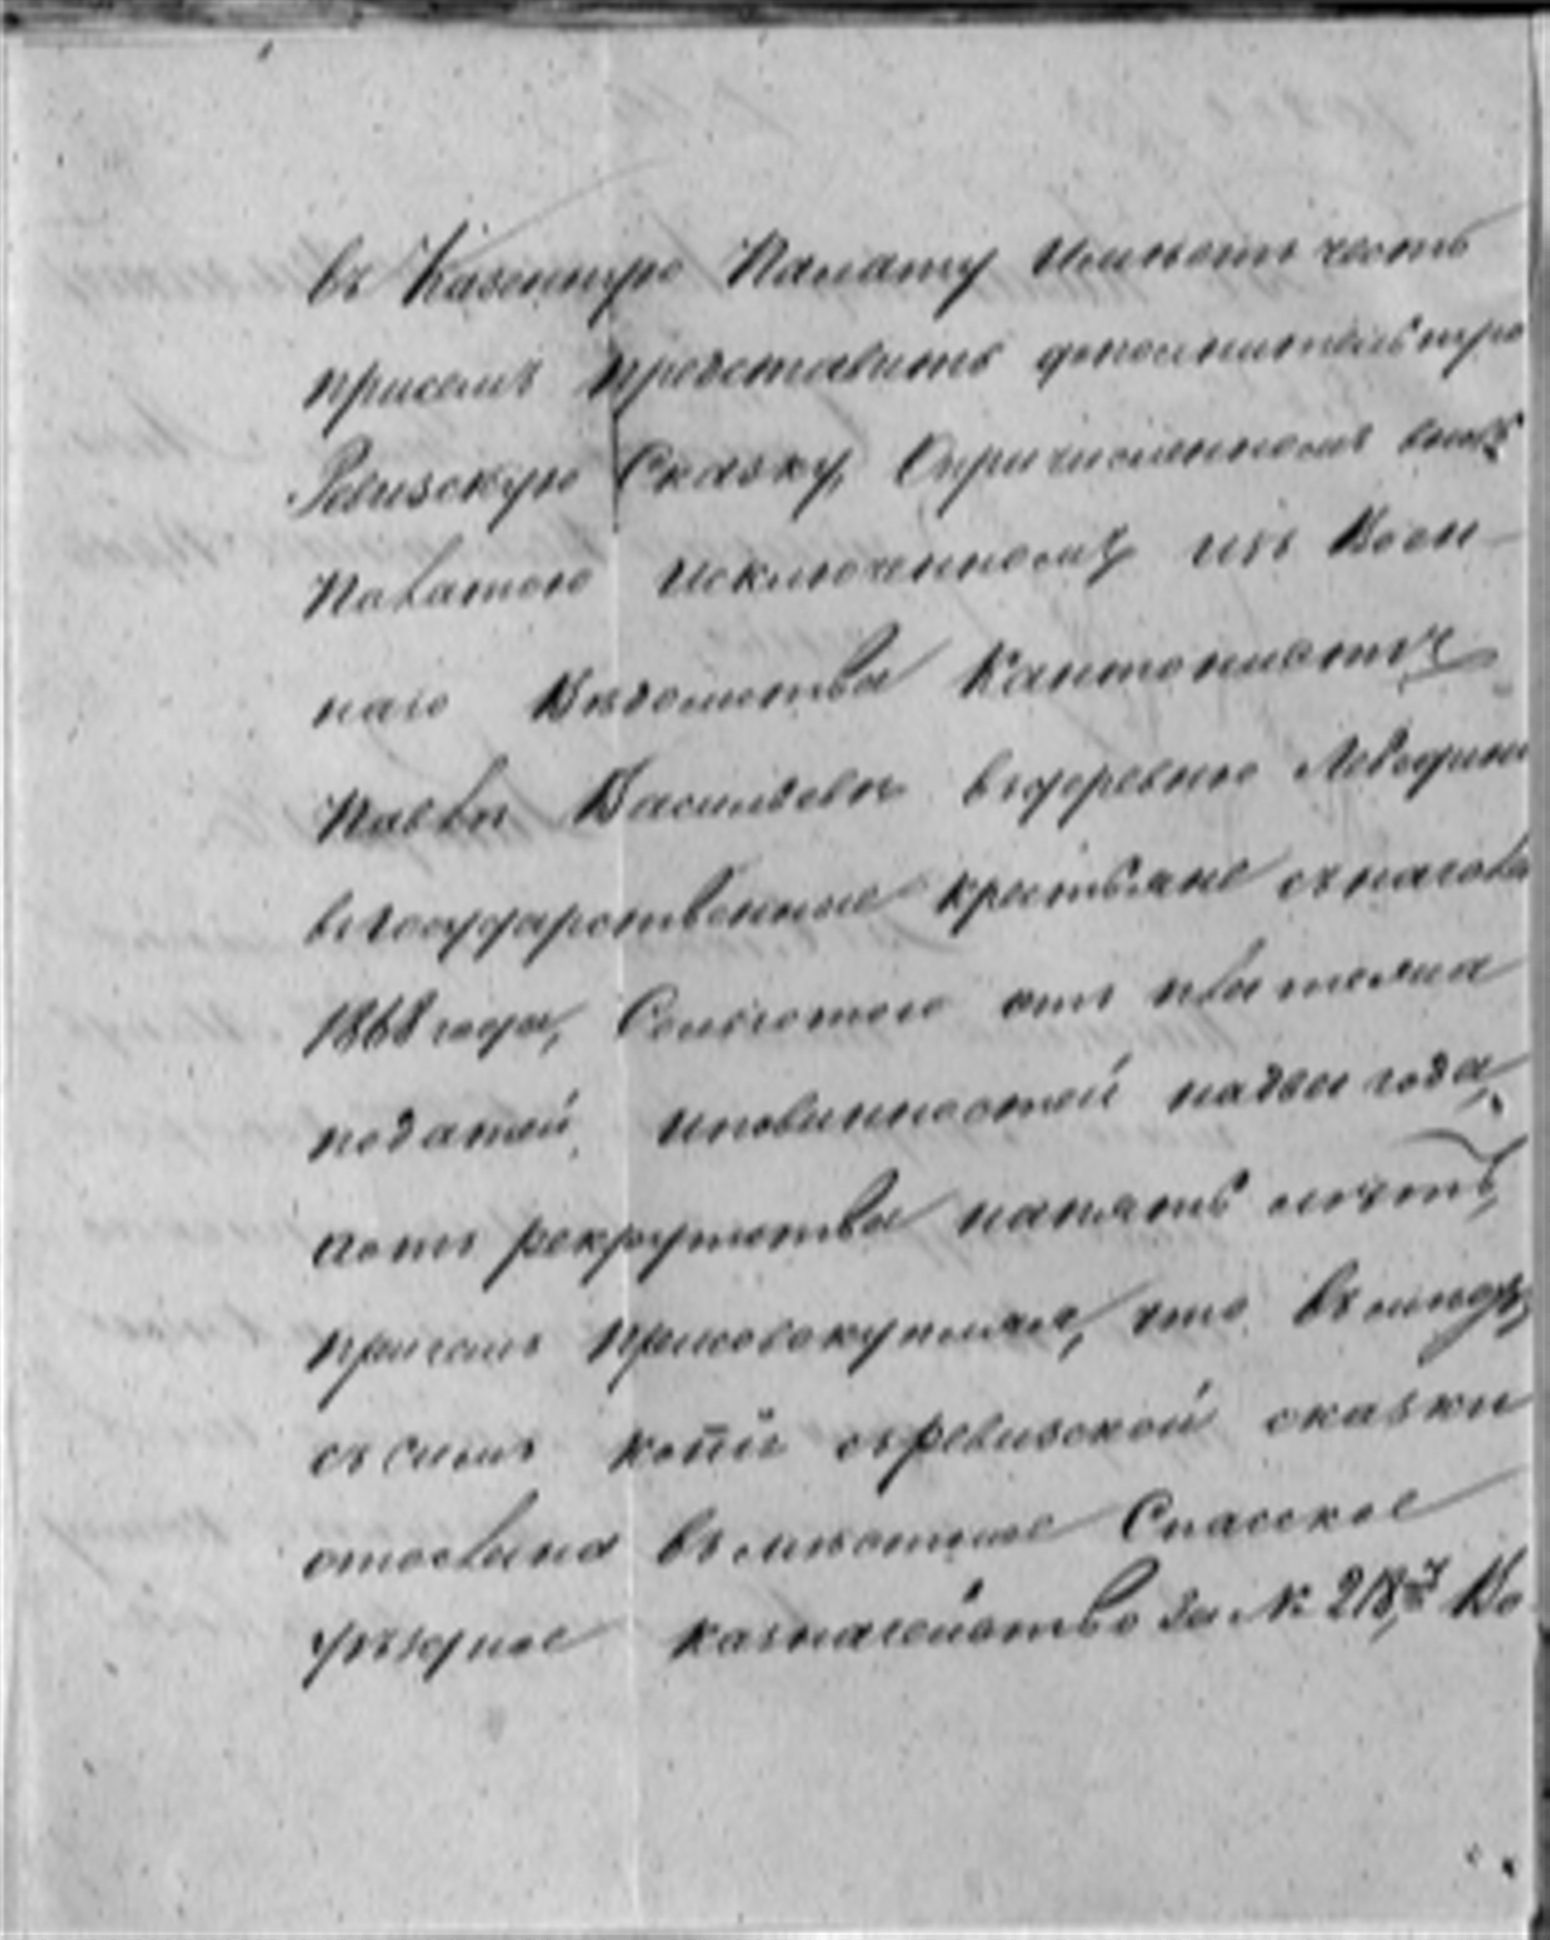 въ Казенную Палату Имѣетъ честь
присемъ представить дополнительную
Ревизскую Сказку, Опричисленномъ
исключенномъ изъ Воен-
наго Вѣдомства Кантонистѣ
Васильевѣ вдеревню Лебедино
вгосударственные крестьяне съначала
1868 года, Сольготою отъ платежа
податей, иповинностей надва года,
аотъ рекрутства
причемъ присовокупляя, что въмѣстѣ
съсимъ копіи съревизской сказки
отослана въмѣстное Спасское
уѣздное казначейство за № 218, Во